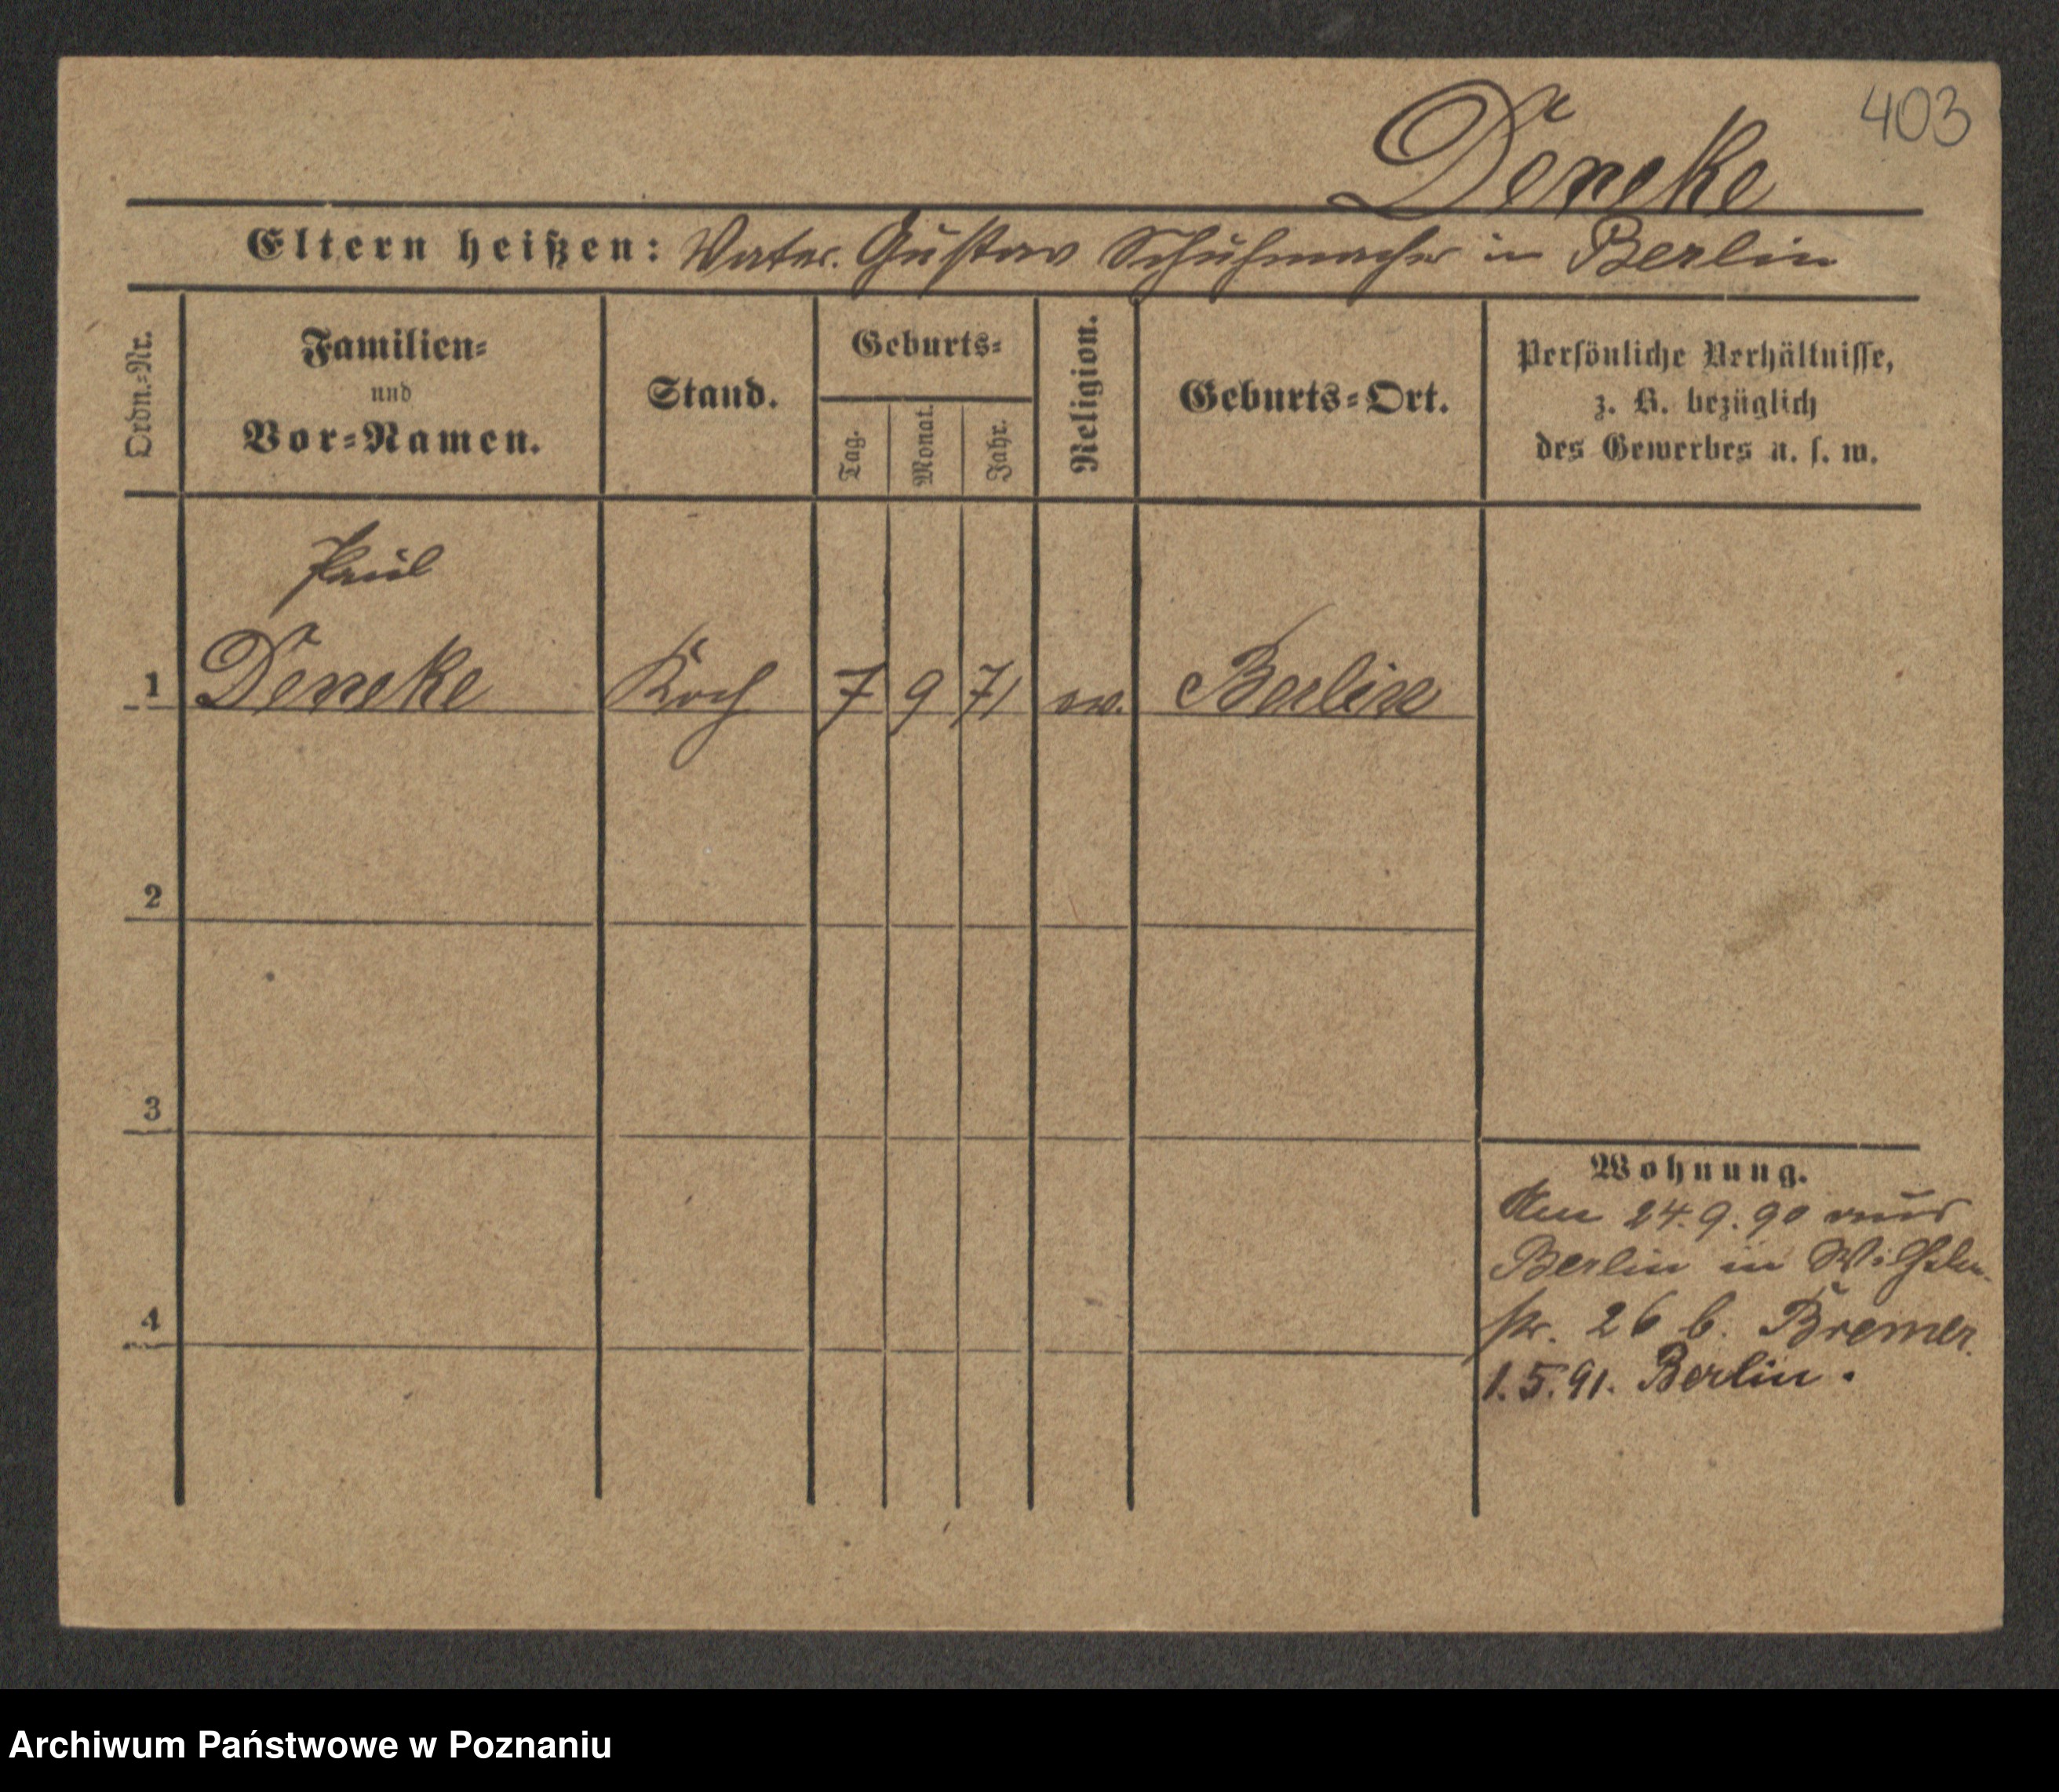 403
Deneke
Eltern heißen: Vater. Gustav Schuhmacher in Berlin
Ordn.=Nr.
Familien=
und
Vor=Namen.
Stand.
Geburts=
Tag.
Monat.
Jahr.
Religion.
Geburts=Ort.
Persönliche Verhältnisse,
z. B. bezüglich
des Gewerbes u. s. w.
Paul
1 Deneke Koch 7 9 71 ev. Berlin
2
3
4
Wohnung.
Am 24.9.90 aus
Berlin in Wilhelm-
str. 26 b. Bremer.
1.5.91. Berlin.
Archiwum Państwowe w Poznaniu